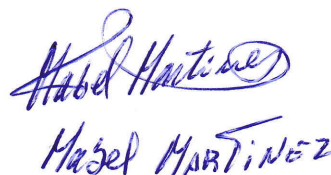 Mabel Martinez
Mabel MARTINEZ